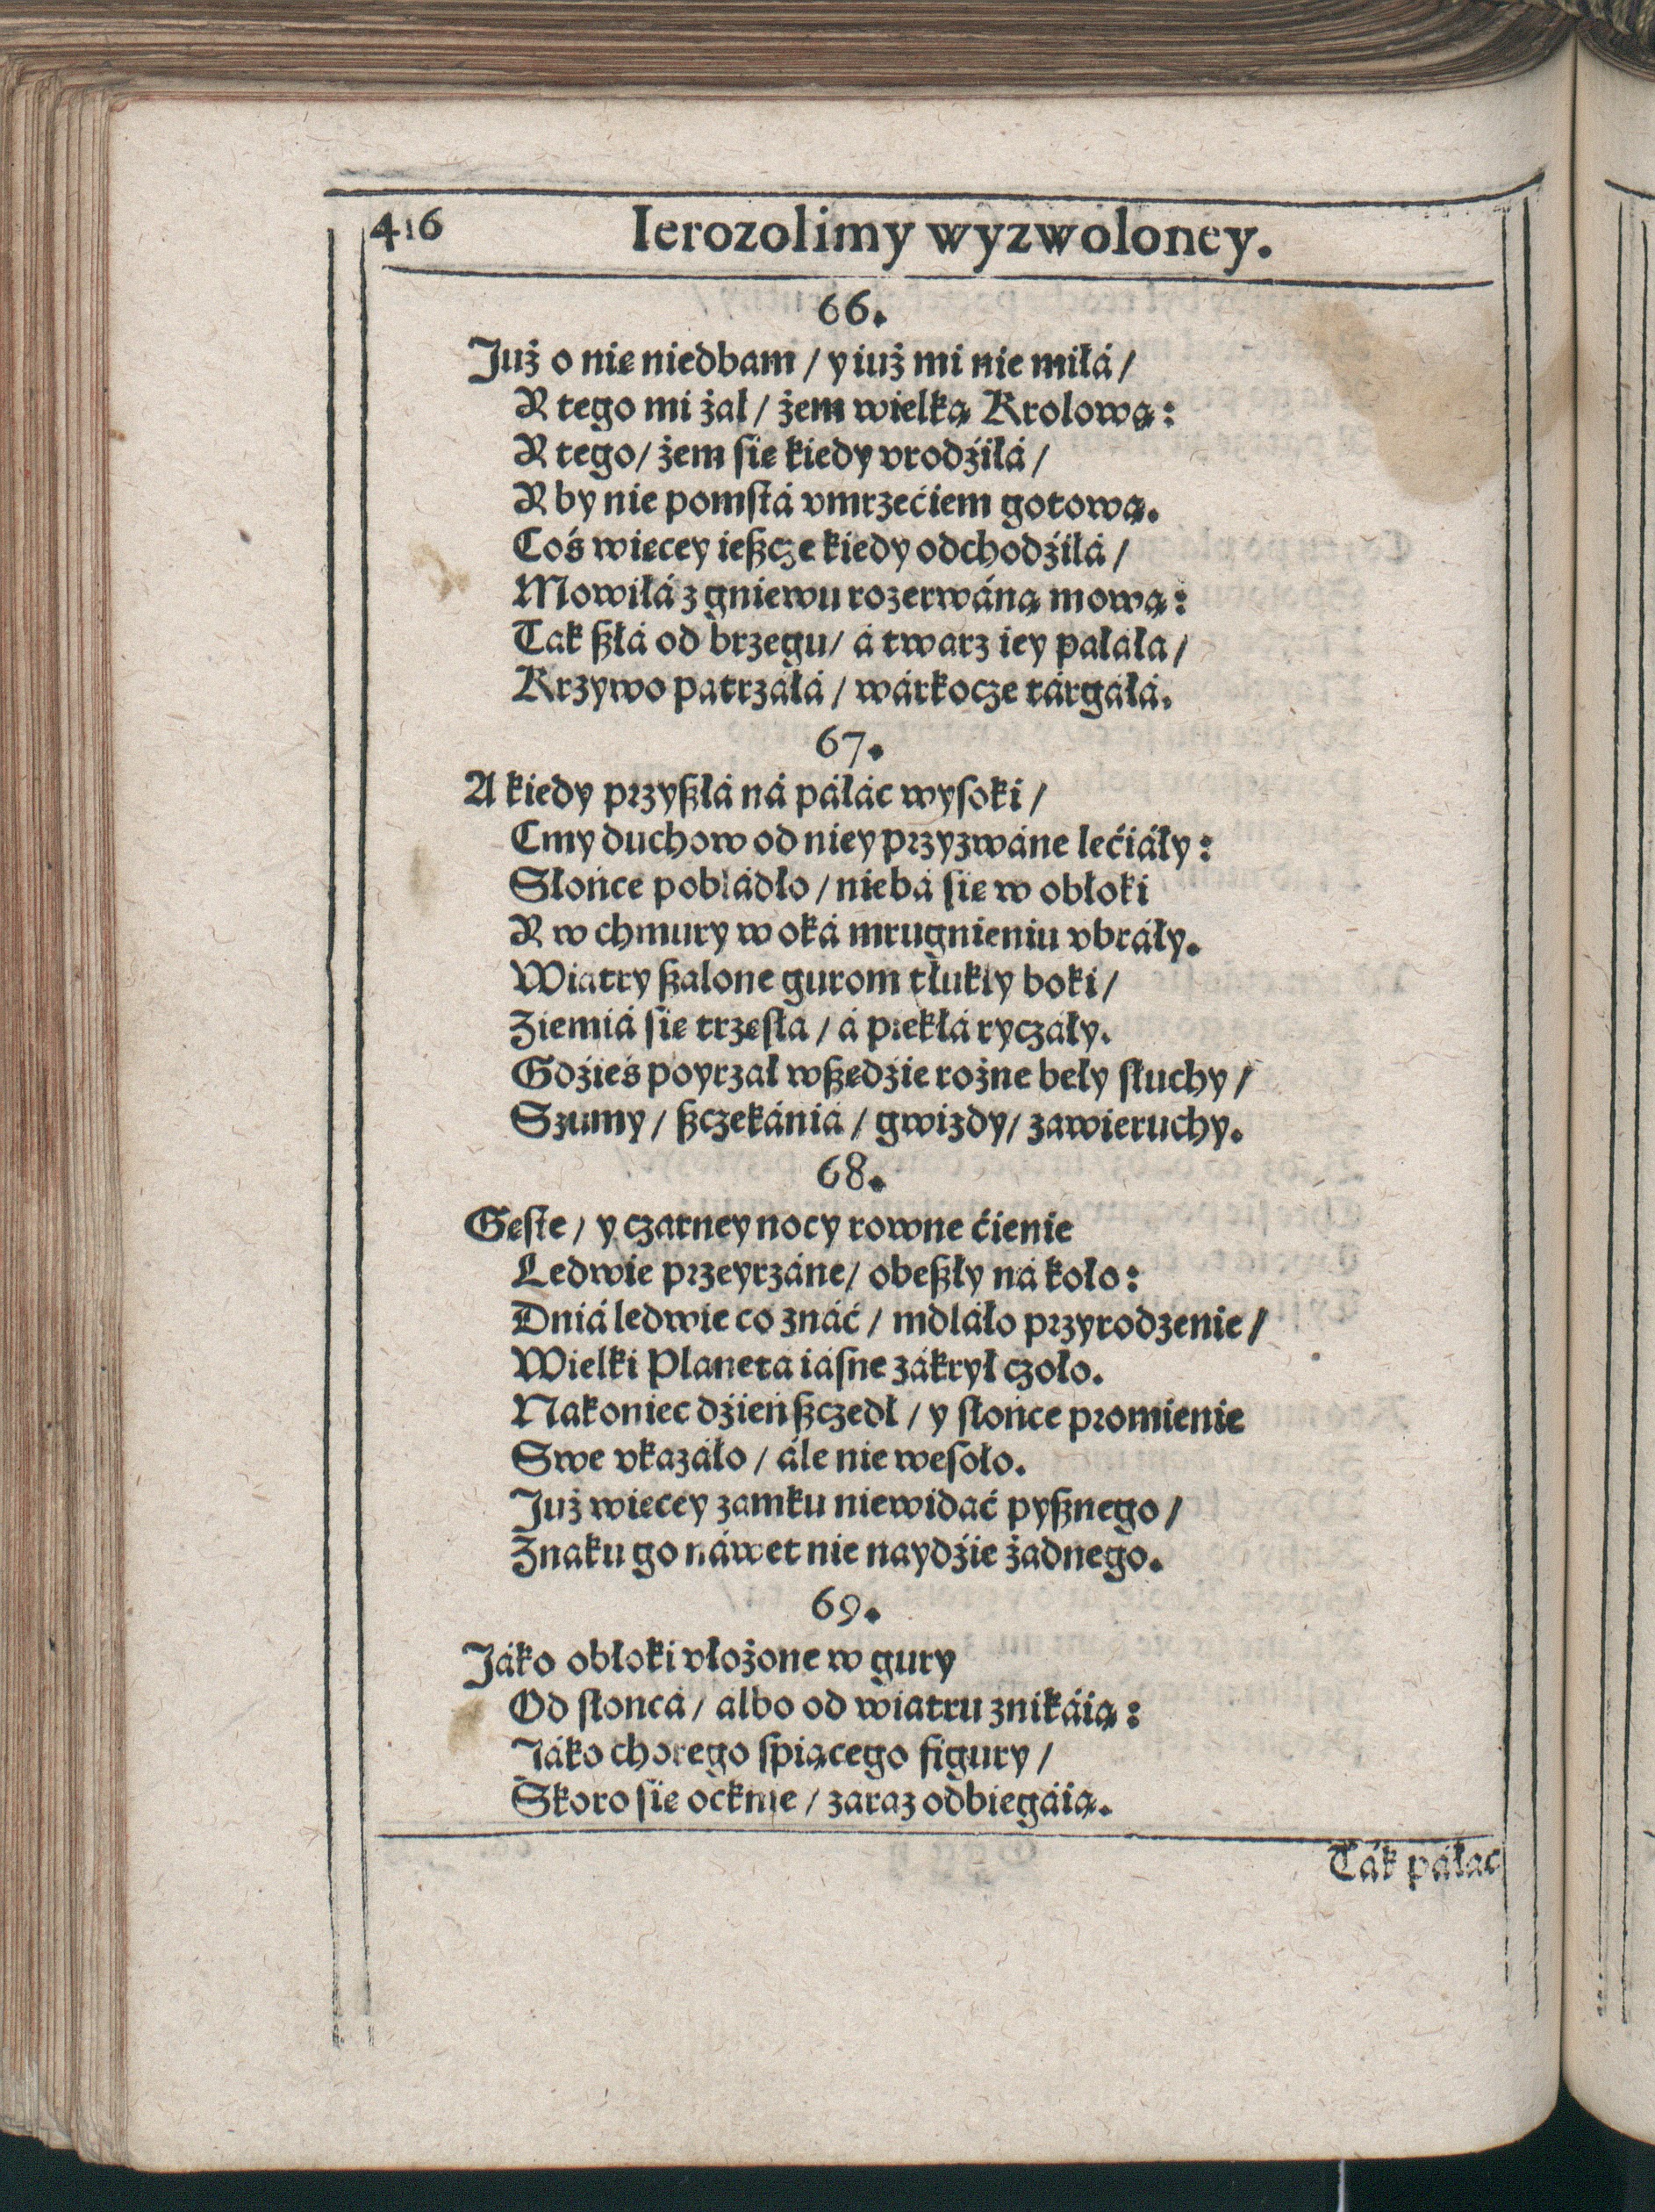 416
Ierozolimy wyzwoloney.
66.
Już o nie niedbam / y iuż mi nie miłá /
Y tego mi żal / żem wielką Krolową:
Y tego / żem się kiedy vrodźiłá /
Y by nie pomstá vmrzećiem gotową.
Coś więcey ießcze kiedy odchodźiłá /
Mowiłá z gniewu rozerwáną mową:
Tak ßłá od brzegu / á twarz iey pałáła /
Krzywo patrzáłá / wárkocze tárgáłá.
67.
A kiedy przyßłá ná páłac wysoki /
Cmy duchow od niey przyzwáne lećiáły:
Słońce pobládło / niebá się w obłoki
Y w chmury w oká mrugnieniu vbráły.
Wiatry ßalone gurom tłukły boki /
Ziemiá się trzęsła / á piekłá ryczáły.
Gdźieś poyrzał wßędźie rożne beły słuchy /
Szumy / ßczekánia / gwizdy / zawieruchy.
68.
Gęste / y czarney nocy rowne ćienie
Ledwie przeyrzáne / obeßły ná koło:
Dniá ledwie co znáć / mdláło przyrodzenie /
Wielki Planetá iásne zákrył czoło.
Nakoniec dźień ßczedł / y słońce promienie
Swe vkazáło / ále nie wesoło.
Już więcey zamku niewidać pyßnego /
Znaku go náwet nie naydźie żadnego.
69.
Jáko obłoki vłożone w gury
Od słońcá / albo od wiatru znikáią:
Jáko chorego spiącego figury /
Skoro się ocknie / zaraz odbiegáią.
Ták páłac